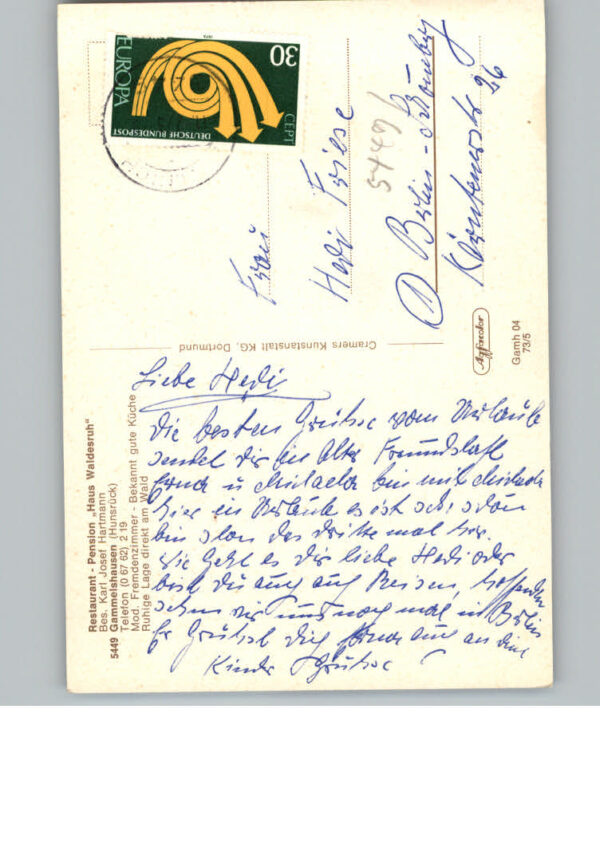 Restaurant - Pension „Haus Waldesruh"
Bes. Karl Josef Hartmann
5449 Gammelshausen (Hunsrück)
Telefon (0 67 62) 2 19
Mod. Fremdenzimmer - Bekannt gute Küche
Ruhige Lage direkt am Wald
Cramers Kunstanstalt KG, Dortmund
Agfacolor
Gamh 04
73/5
EUROPA
30
CEPT
DEUTSCHE BUNDESPOST
1973
Frau
Hedi Friese
5449
1 Berlin-Schöneberg
Kärntenerstr 26
Liebe Hedi
Die besten Grühse vom Urlaub
sendet dir ein Alte Freundschaft
Erna u Michaela bin mit Michaela
hier in Urlaub es ist sehr schön
bin schon das dritte mal hier.
Wie geht es dir liebe Hedi oder
bist du auch auf Reisen, hoffenden
sehen wir uns noch mal in Berlin
Es Grühst dich Erna auch an deine
Kinder Grühse